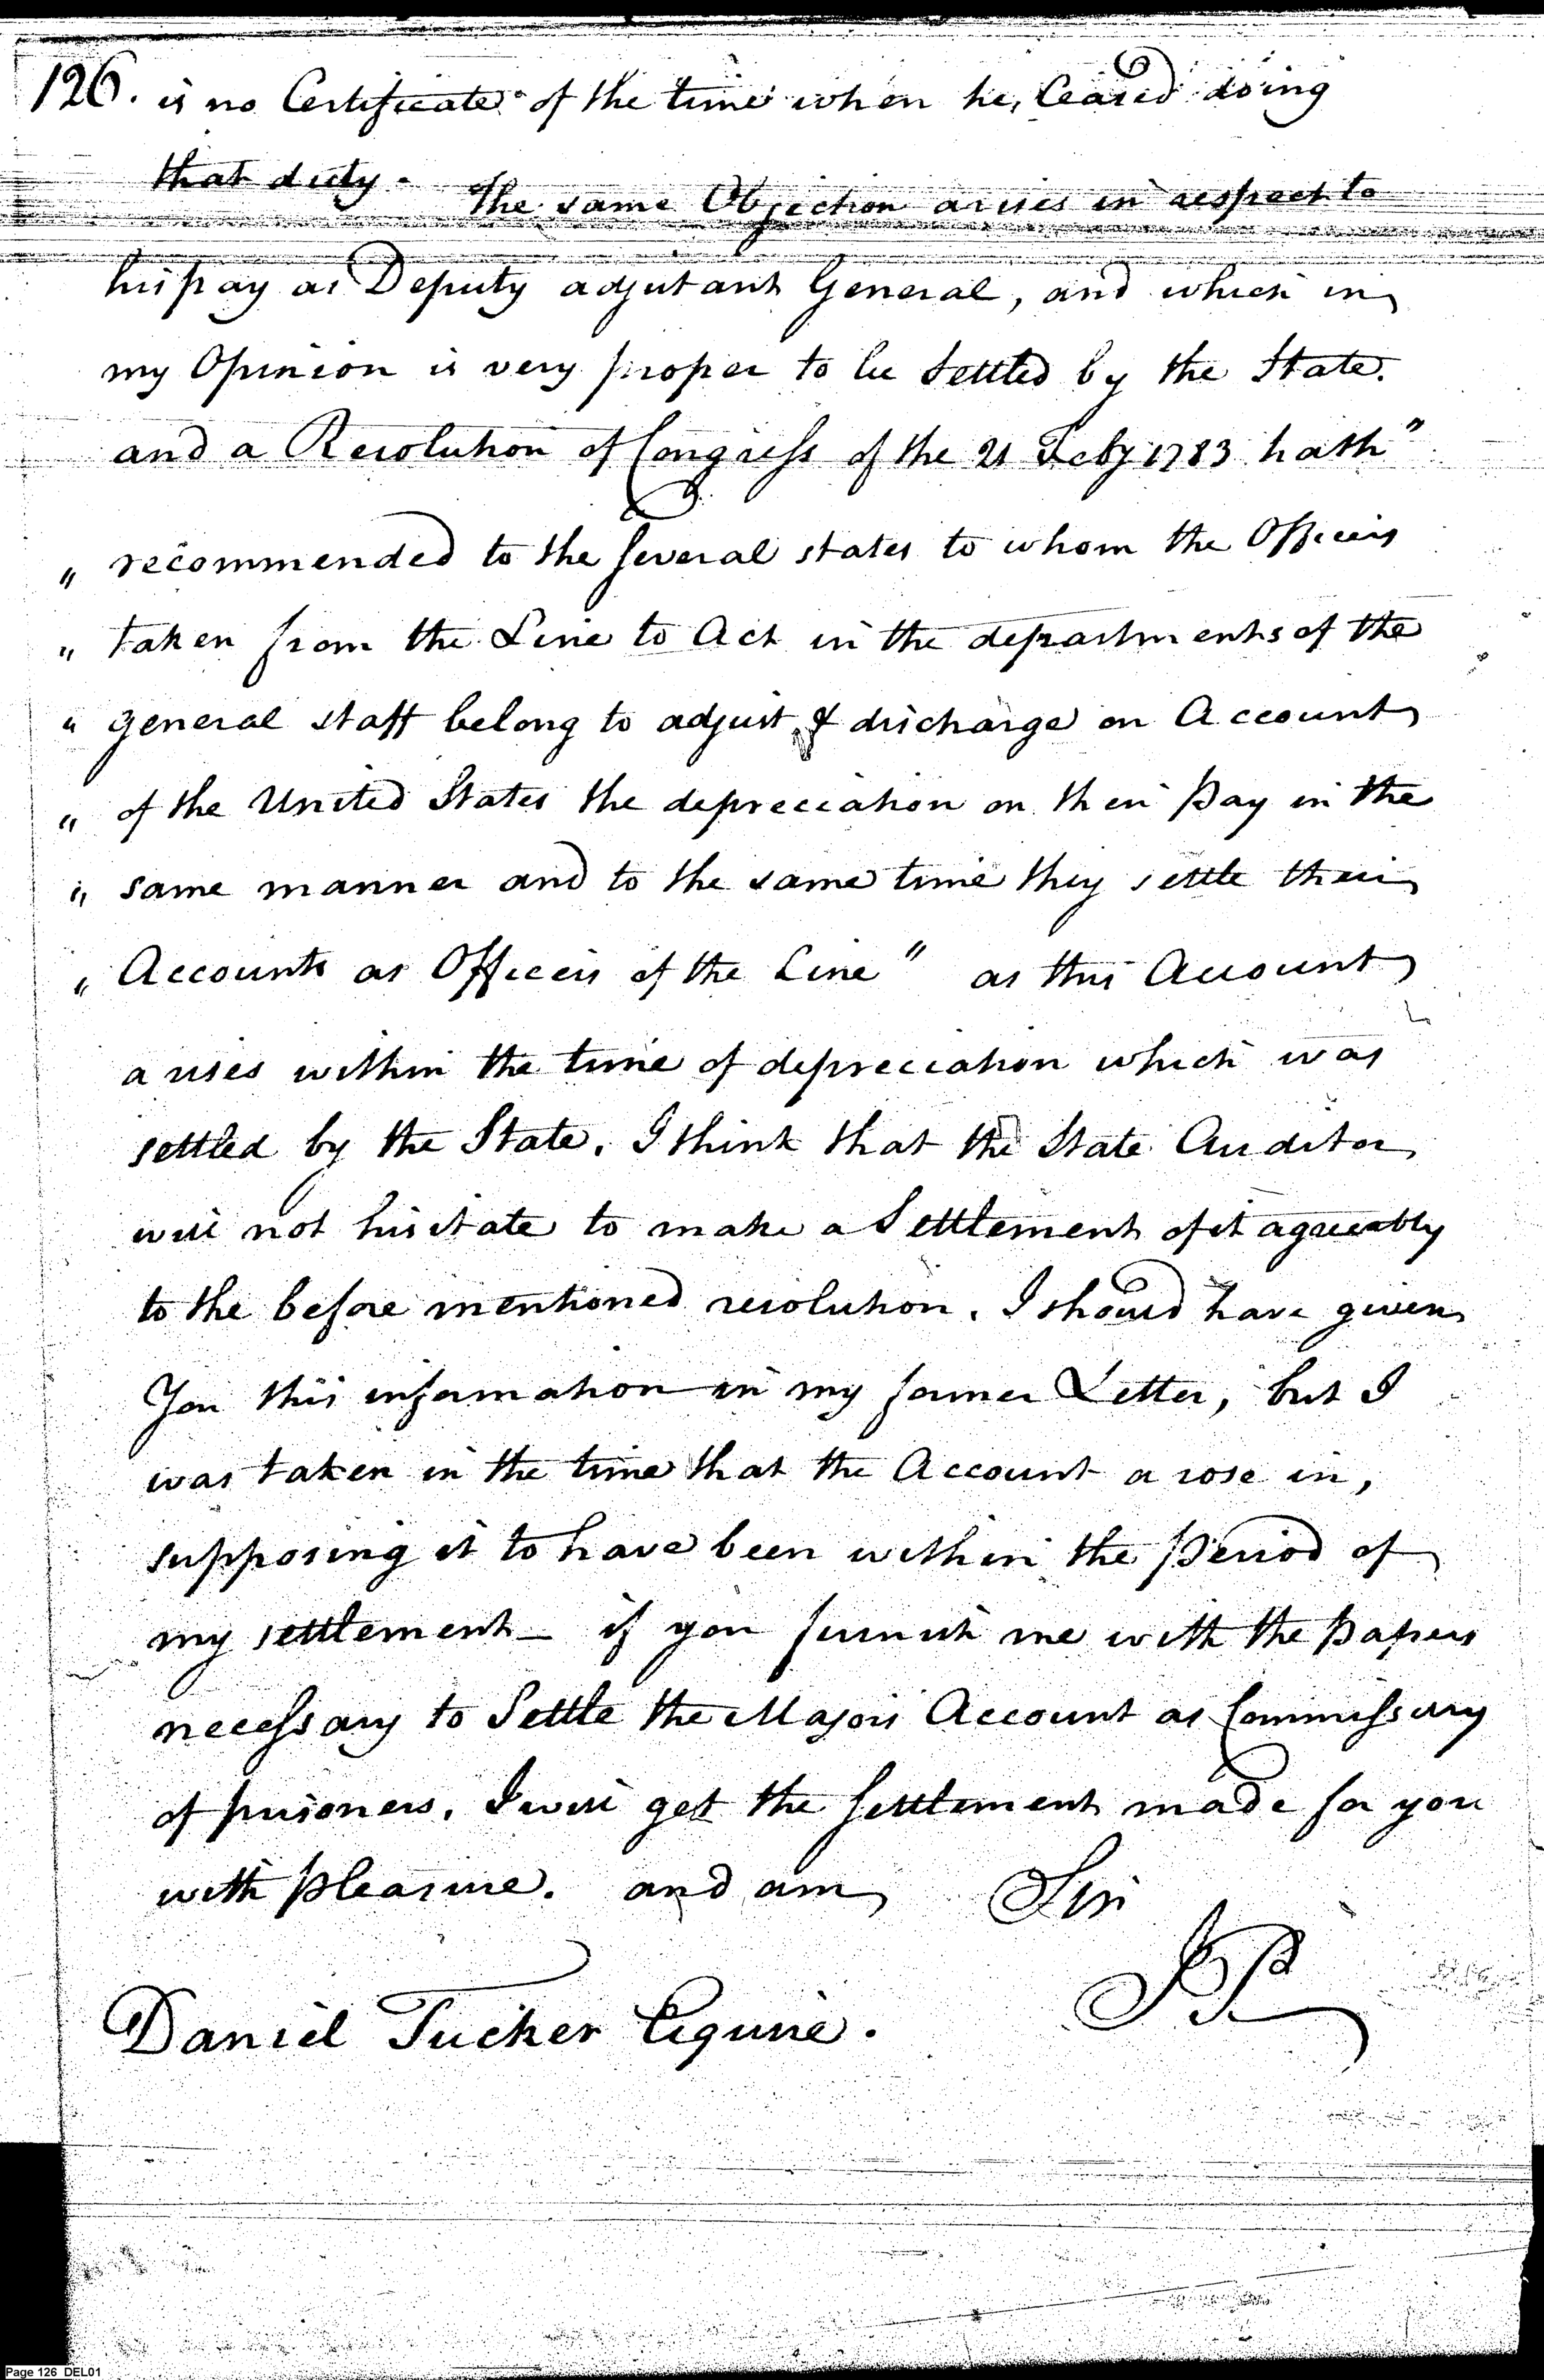 126. is no Certificate of the time when he, Ceased doing
that duty. The same Objection arises in respect to
his pay as Deputy adjutant General, and which in
my Opinion is very proper to be Settled by the State.
and a Resolution of Congress of the 21 Feby 1783 hath"
" recommended to the several states to whom the Officers
" taken from the Line to Act in the departments of the
" general staff belong to adjust & discharge on Account
" of the United States the depreciation on their Pay in the
" same manner and to the same time they settle their
" Accounts as Officers of the Line" as this Account
arises within the time of depreciation which was
settled by the State, I think that the State Auditor
will not hisitate to make a Settlement of it agreeably
to the before mentioned resolution. I should have given
You this information in my former Letter, but I
was taken in the time that the Account arose in,
supposing it to have been within the Period of
my settlement - if you furnish me with the Papers
necessary to Settle the Majors Account as Commissary
of prisoners, I will get the settlement made for you
with Pleasure. and am Sir
JP
Daniel Tucker Esquire.
Page 126 DEL01